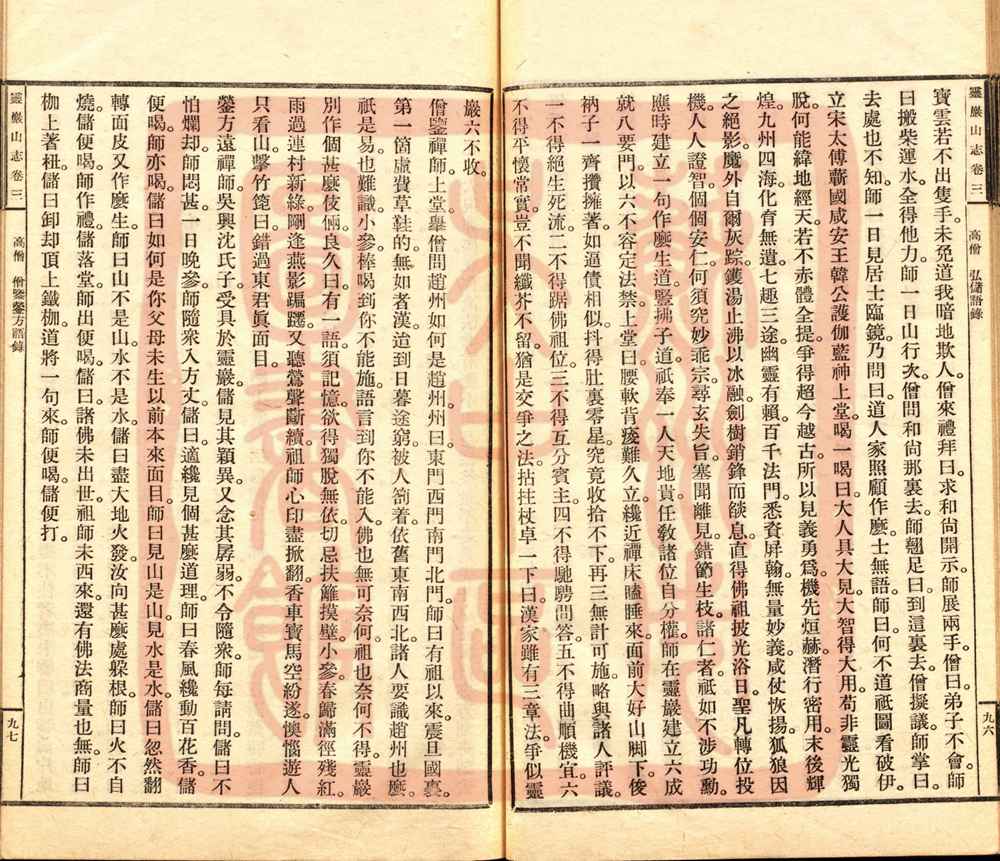 靈巖山志卷三
高僧 弘儲語錄
九六
寶雲若不出隻手。未免道我暗地欺人。僧來禮拜曰。求和尙開示。師展兩手。僧曰。弟子不會。師
曰。搬柴運水。全得他力。師一日山行次。僧問和尙那裏去。師翹足曰。到這裏去。僧擬議。師掌曰。
去處也不知。師一日見居士臨鏡。乃問曰。道人家照顧作麽。士無語。師曰。何不道祇圖看破伊。
立宋太傅蘄國咸安王韓公護伽藍神上堂。喝一喝曰。大人具大見。大智得大用。苟非靈光獨
脫。何能緯地經天。若不赤體全提。爭得超今越古。所以見義勇爲。機先烜赫。潛行密用。末後輝
煌。九州四海。化育無遺。七趣三途。幽靈有賴。百千法門。悉資屛翰。無量妙義。咸仗恢揚。狐狼因
之絕影。魔外自爾灰踪。鑊湯止沸以冰融。劍樹銷鋒而燄息。直得佛祖披光浴日。聖凡轉位投
機。人人證智。個個安仁。何須究妙乖宗。尋玄失旨。塞聞離見。錯節生枝。諸仁者。祇如不涉功勳。
應時建立一句作麽生道。豎拂子。道祇奉一人天地貴。任敎諸位自分權。師在靈巖建立六成
就八要門。以六不容定法禁。上堂曰。腰軟背痠難久立。纔近禪床瞌睡來。面前大好山脚下。俊
衲子一齊攢擁著。如逼債相似。抖得肚裏零星。究竟收拾不下。再三無計可施。略與諸人評議。
一不得絕生死流。二不得踞佛祖位。三不得互分賓主。四不得馳騁問答。五不得曲順機宜。六
不得平懷常實。豈不聞纖芥不留。猶是交爭之法。拈拄杖卓一下曰。漢家雖有三章法。爭似靈
巖六不收。
僧鑒禪師上堂。舉僧問趙州如何是趙州。州曰。東門西門南門北門。師曰。有祖以來。震旦國裏。
第一箇虛費草鞋的。無如者漢。道到日暮途窮。被人箚着。依舊東南西北。諸人要識趙州也麽。
祇是易也難識。小參。棒喝到你不能施。語言到你不能入。佛也無可奈何。祖也奈何不得。靈巖
別作個甚麽伎倆。良久曰。有一語。須記憶。欲得獨脫無依。切忌扶籬摸壁。小參。春歸滿徑殘紅。
雨過連村新綠。剛逢燕影蹁躚。又聽鶯聲斷續。祖師心印盡掀翻。香車寶馬空紛逐。懊惱遊人
只看山。擊竹篦曰。錯過東君眞面目。
鎣方遠禪師。吳興沈氏子。受具於靈巖。儲見其穎異。又念其孱弱。不令隨衆。師每請問。儲曰。不
怕爛却。師悶甚。一日晚參。師隨衆入方丈。儲曰。適纔見個甚麽道理。師曰。春風纔動百花香。儲
便喝。師亦喝。儲曰。如何是你父母未生以前本來面目。師曰。見山是山。見水是水。儲曰。忽然翻
轉面皮。又作麽生。師曰。山不是山。水不是水。儲曰。盡大地火發。汝向甚麽處躱根。師曰。火不自
燒。儲便喝。師作禮。儲落堂。師出便喝。儲曰。諸佛未出世。祖師未西來。還有佛法商量也無。師曰。
枷上著杻。儲曰。卸却頂上鐵枷。道將一句來。師便喝。儲便打。
靈巖山志卷三
高僧 僧鑒鎣方語錄
九七